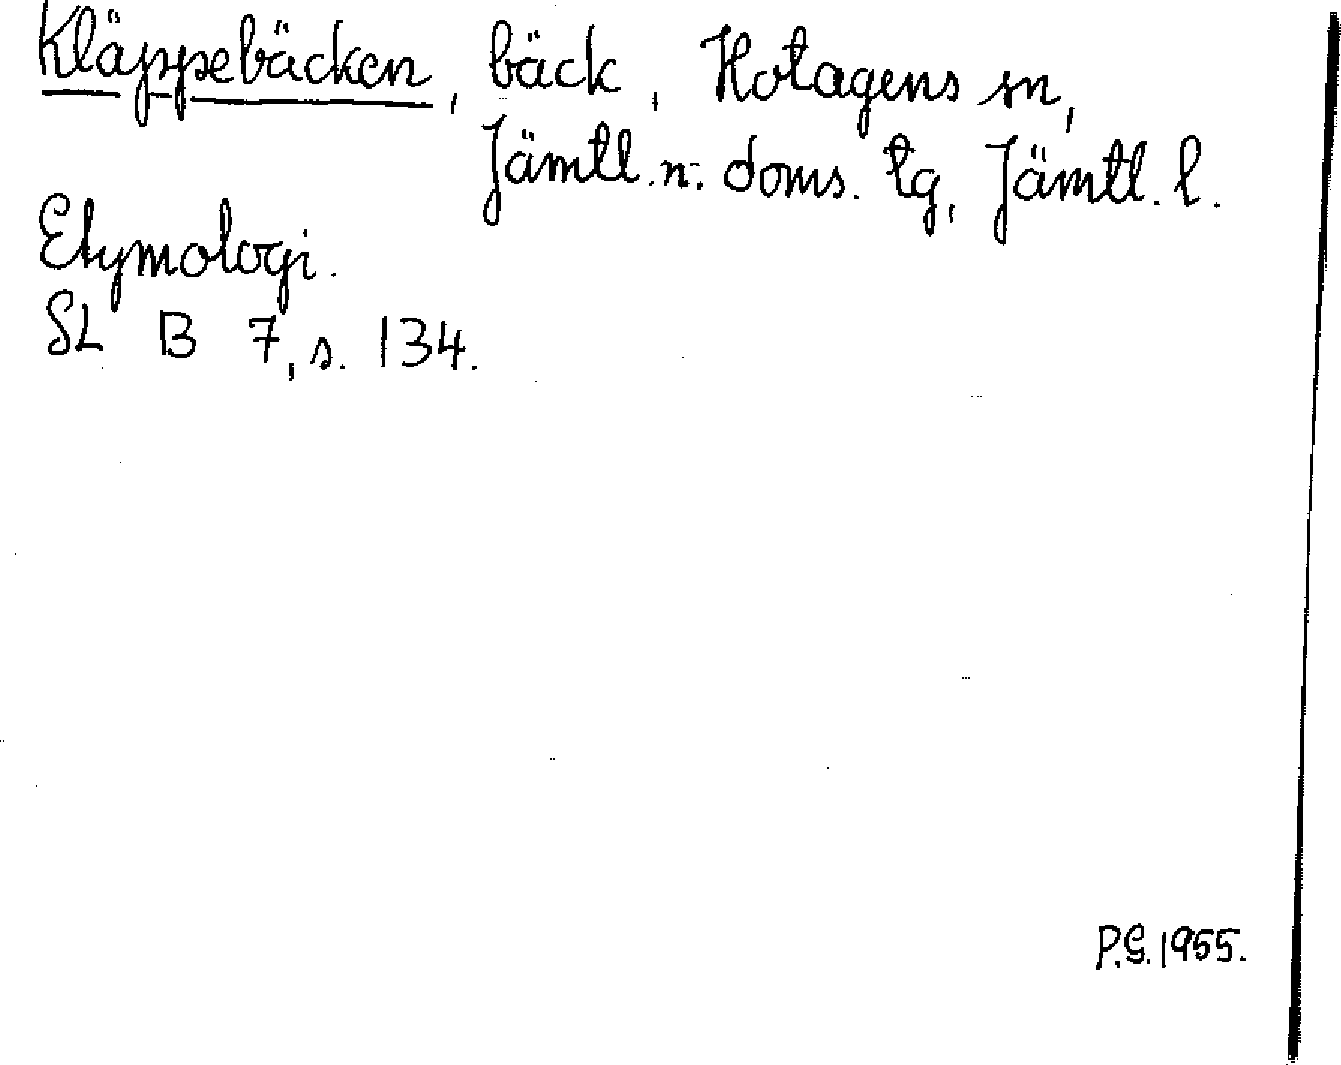 Kläppebäcken, bäck, Hotagens sn,
Jämtl. n. doms. tg, Jämtl. l.
Etymologi.
SL B 7, s. 134.
P.G. 1955.